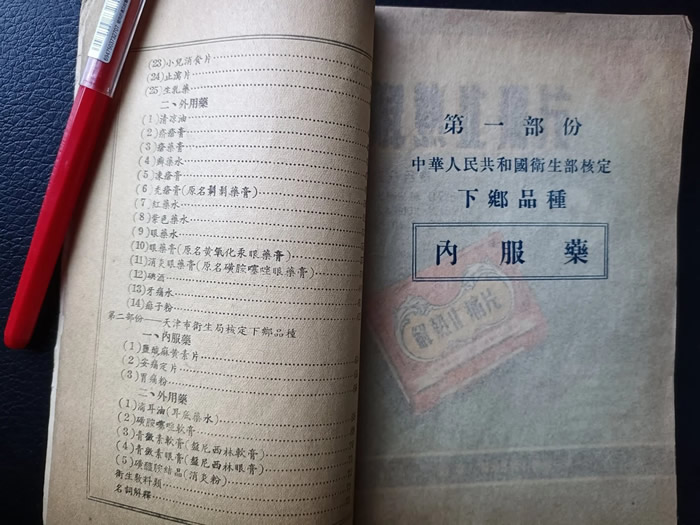 (23)小兒消食片
(24)止瀉片
(25)生乳藥
二、外用藥
(1)清涼油
(2)疥瘡膏
(3)瘡藥膏
(4)癬藥水
(5)凍瘡膏
(6)禿瘡膏(原名剃剃藥膏)
(7)紅藥水
(8)紫色藥水
(9)眼藥水
(10)眼藥膏(原名黃氧化汞眼藥膏)
(11)消炎眼藥膏(原名磺胺噻唑眼藥膏)
(12)碘酒
(13)牙痛水
(14)痱子粉
第二部份——天津市衛生局核定下鄉品種
一、內服藥
(1)鹽酸麻黃素片
(2)安痛定片
(3)胃痛粉
二、外用藥
(1)滴耳油(耳底藥水)
(2)磺胺噻唑軟膏
(3)青黴素軟膏(盤尼西林軟膏)
(4)青黴素眼膏(盤尼西林眼膏)
(5)磺醯胺結晶(消炎粉)
衛生敷料類
名詞解釋
第一部份
中華人民共和國衛生部核定
下鄉品種
內服藥